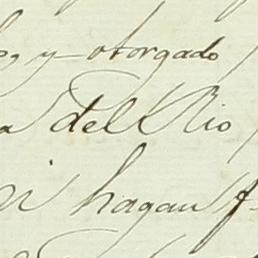 y otorgado
a del Rio
i hagan f